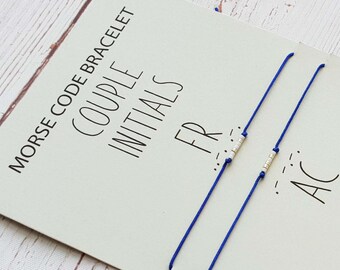 MORSE CODE BRACELET
COUPLE
INITIALS
FR
AC